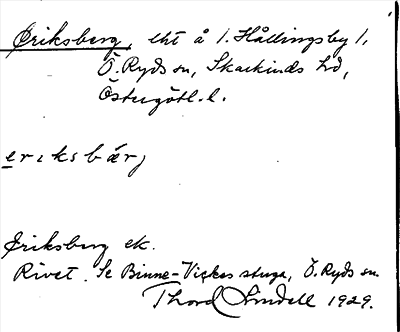 Eriksberg, lht å 1. Hållingsby 1,
Ö. Ryds sn, Skärkinds hd,
Östergötl. l.
eriksbärj
Eriksberg ek.
Rivet. Se Binne-Vickes stuga, Ö. Ryds sn.
Thord Lindell 1929.